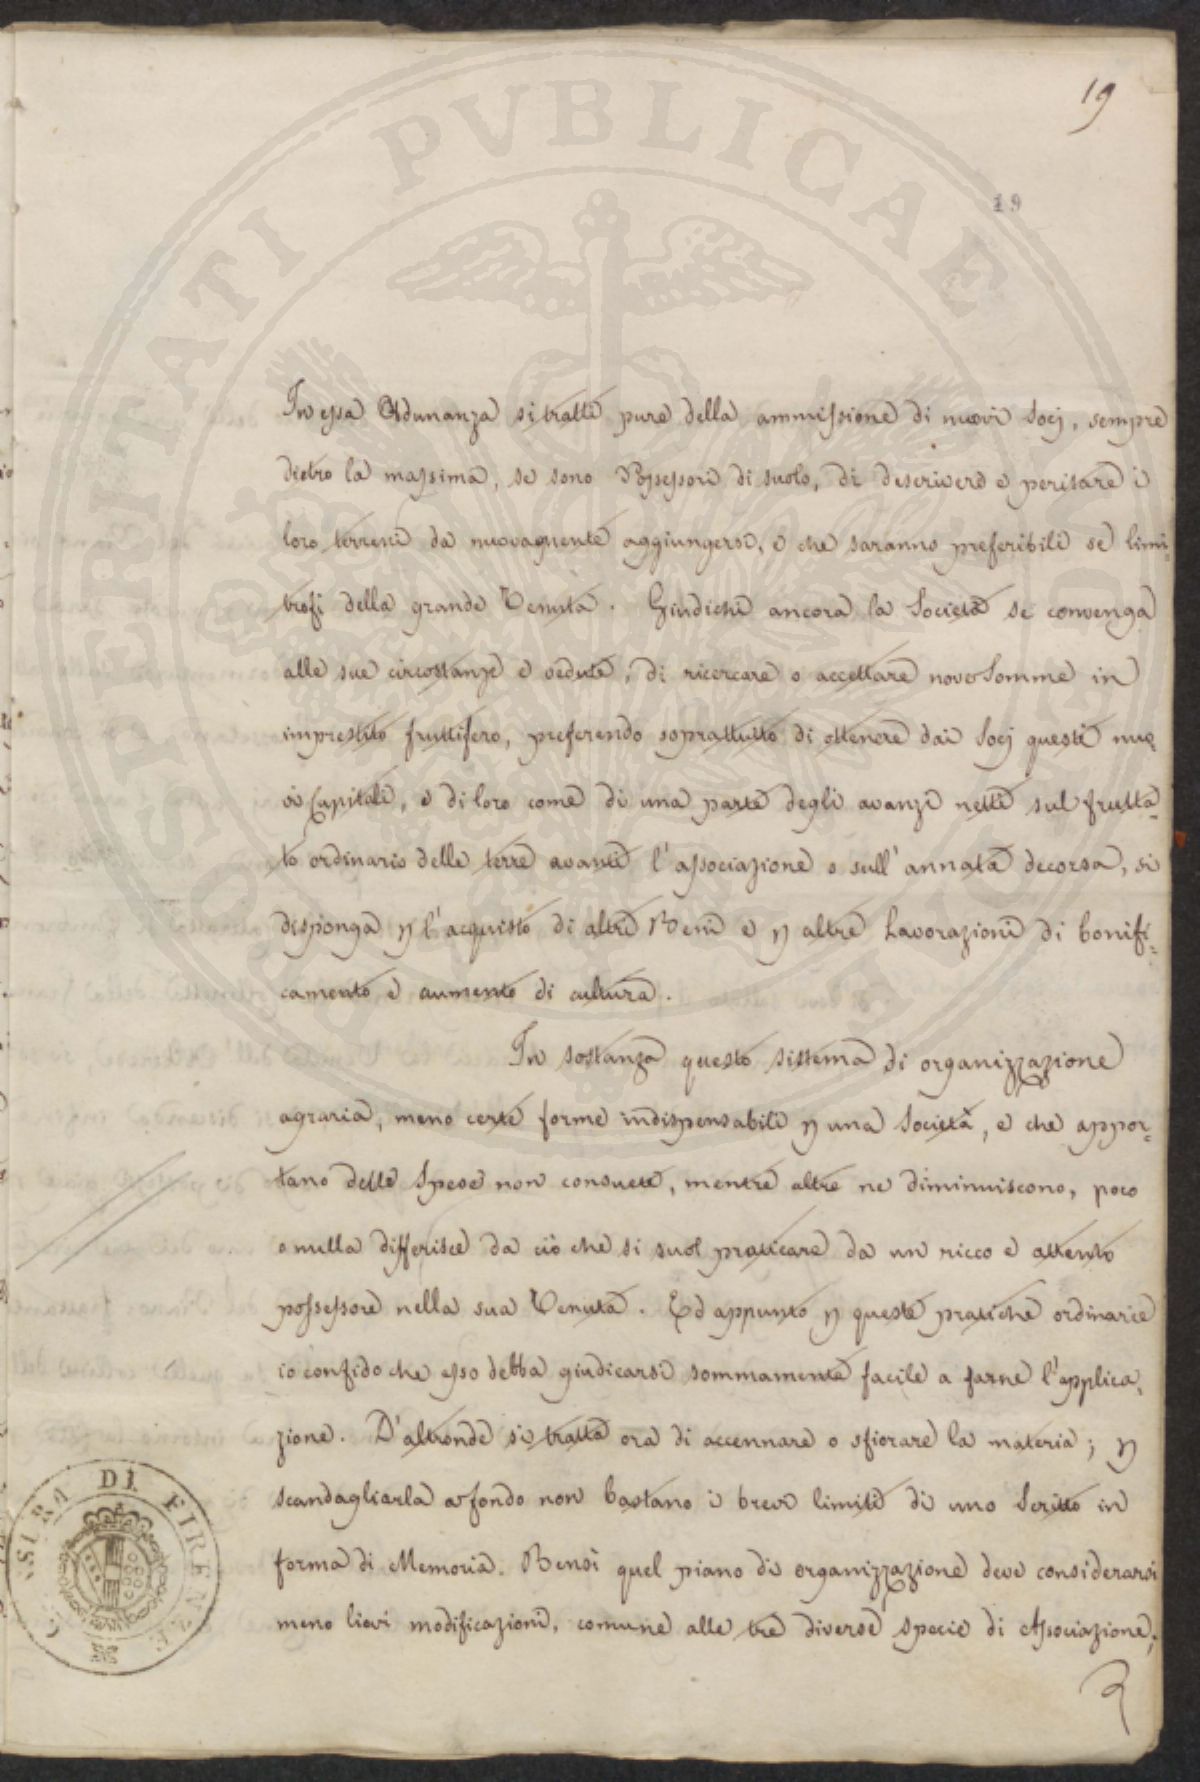 19
19
In essa Adunanza si tratti pure della ammissione di nuovi Socj, sempre
dietro la massima, se sono Possessori di suolo, di descrivere e perisare i
loro terreni da nuovamente aggiungersi, e che saranno preferibili se limi=
trofi della grande Tenuta. Giudichi ancora la Società se convenga
alle sue circostanze e vedute, di ricercare o accettare nove Somme in
imprestito fruttifero, preferendo soprattutto di ottenere dai Socj questi nuo=
vi Capitali, e di loro come di una parte degli avanzi netti sul frutta=
to ordinario delle terre avanti l'associazione o sull'annata decorsa, si
disponga p l'acquisto di altri Beni e p altre Lavorazioni di bonifi=
camento e aumento di cultura.
In sostanza questo sistema di organizzazione
agraria, meno certe forme indispensabili p una Società, e che appor=
tano delle Spese non consuete, mentre altre ne diminuiscono, poco
o nulla differisce da ciò che si suol praticare da un ricco e attento
possessore nella sua Tenuta. Ed appunto p queste pratiche ordinarie
io confido che esso debba giudicarsi sommamente facile a farne l'applica=
zione. D'altronde si tratta ora di accennare o sfiorare la materia; p
scandagliarla a fondo non bastano i brevi limiti di uno Scritto in
forma di Memoria. Bensì quel piano di organizzazione deve considerarsi
meno lievi modificazioni, comune alle tre diverse specie di Associazione,
PROSPERITATI PVBLICAE
DI FIRENZE